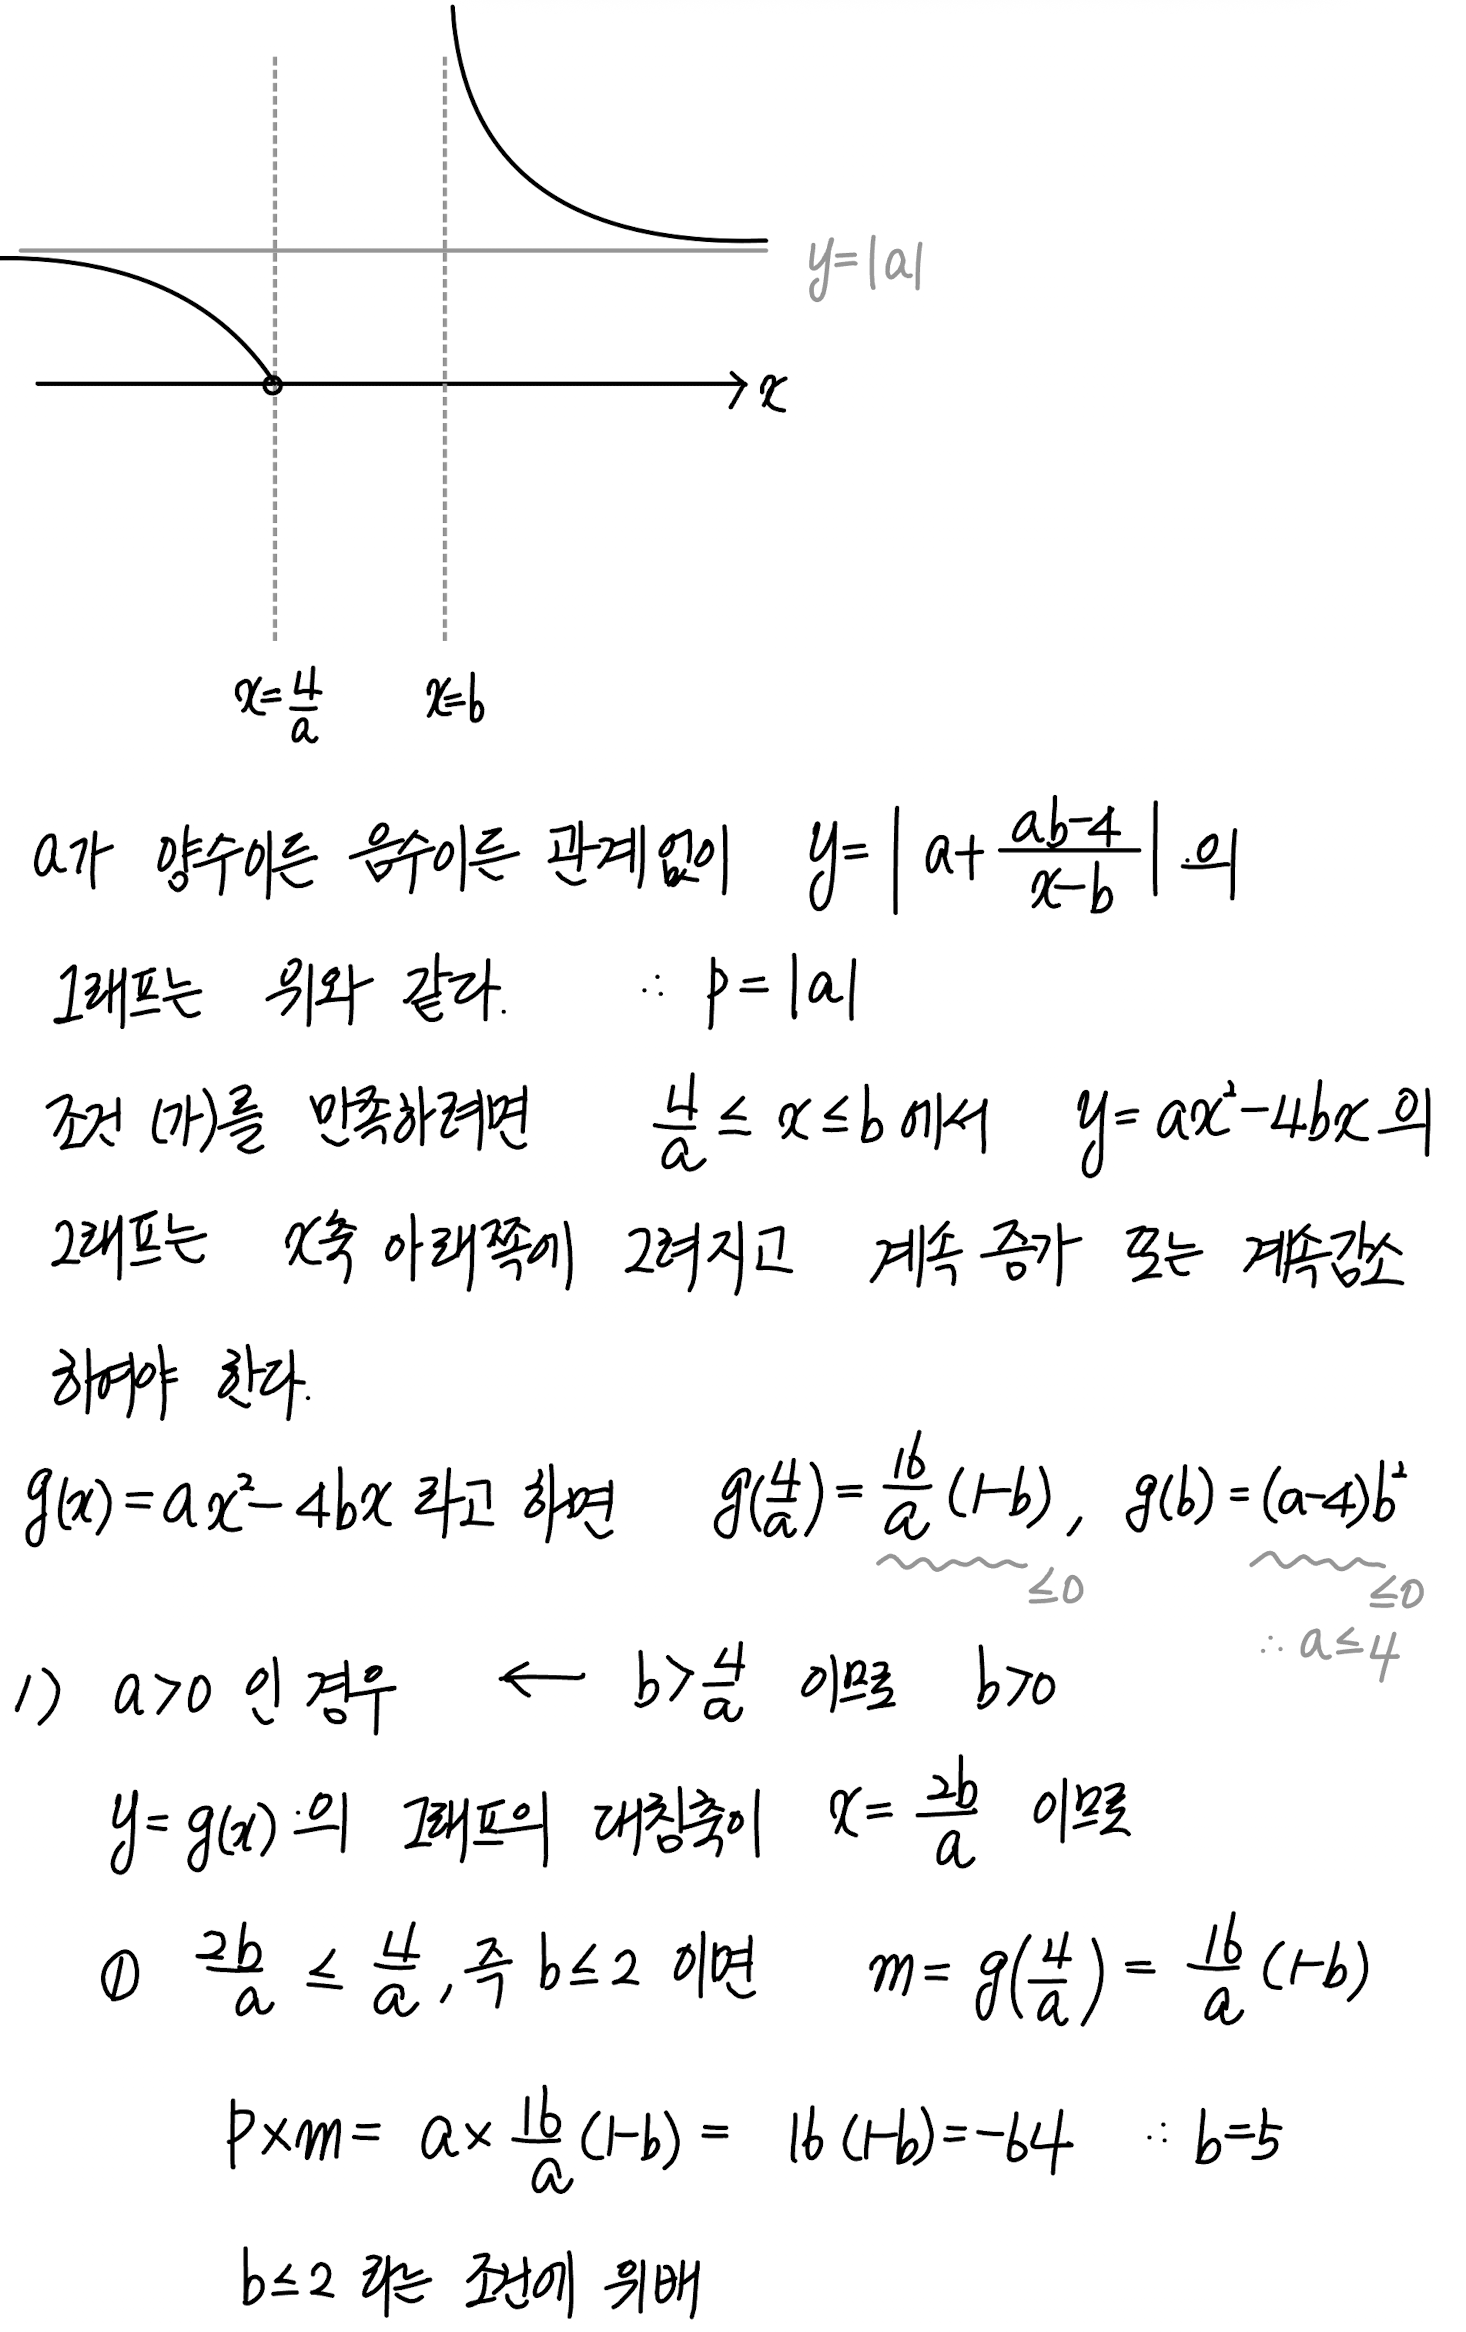 y=|a|
x
x=4/a x=b
a가 양수이든 음수이든 관계없이 y=|a+(ab-4)/(x-b)|의
그래프는 위와 같다. ∴ p=|a|
조건 (가)를 만족하려면 4/a ≤ x ≤ b 에서 y=ax²-4bx의
그래프는 x축 아래쪽에 그려지고 계속 증가 또는 계속감소
하여야 한다.
g(x)=ax²-4bx 라고 하면 g(4/a)=16/a(1-b), g(b)=(a-4)b²
≤0 ≤0
∴ a≤4
1) a>0 인 경우 ← b>4/a 이므로 b>0
y=g(x)의 그래프의 대칭축이 x=2b/a 이므로
① 2b/a ≤ 4/a, 즉 b≤2 이면 m=g(4/a)=16/a(1-b)
p×m= a×16/a(1-b)= 16(1-b)=-64 ∴ b=5
b≤2 라는 조건에 위배